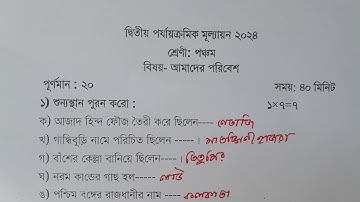 দ্বিতীয় পর্যায়ক্রমিক মূল্যায়ন ২০২৪
শ্রেণী: পঞ্চম
বিষয়- আমাদের পরিবেশ
পূর্ণমান : ২০ সময়: ৪০ মিনিট
১) শুন্যস্থান পুরন করো : ১×৭=৭
ক) আজাদ হিন্দ ফৌজ তৈরী করে ছিলেন---- নেতাজি
খ) গান্ধিবুড়ি নামে পরিচিত ছিলেন -----। মাতঙ্গিনী হাজরা
গ) বাঁশের কেল্লা বানিয়ে ছিলেন----। তিতুমির
ঘ) নরম কান্ডের গাছ হল----- লাউ
ঙ) পশ্চিম বঙ্গের রাজধানীর নাম ---- কলকাতা